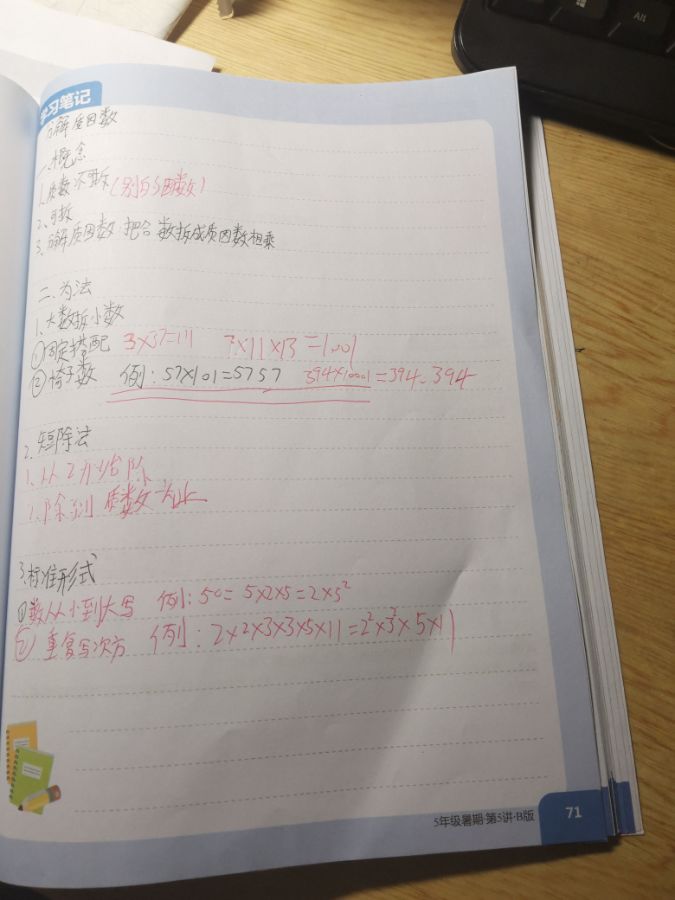 学习笔记
分解质因数
一.概念
1.质数不要拆(别写1因数)
2、可拆
3.分解质因数:把合数拆成质因数相乘
二.方法
1.大数拆小数
①固定搭配 3×37=111 7×11×13=1001
② 椅子数 例:57×101=5757 394×1001=394.394
2.短除法
1、从2开始除
1.除到质数为止
3.标准形式
①数从小到大写 例:50=5×2×5=2×5²
② 重复写次方 例:2×2×3×3×5×11=2²×3²×5×11
5年级暑期·第5讲·B版
71